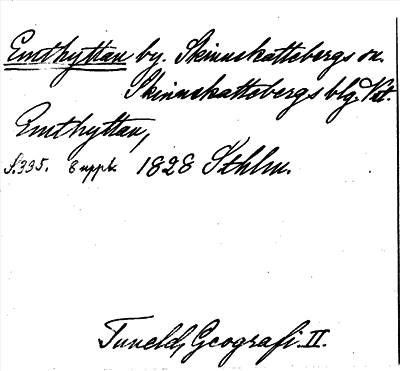 Emthyttan by. Skinnskattebergs sn.
Skinnskattebergs blg. Vstm.
Emthyttan,
S.335. 8 uppl. 1828 Sthlm.
Tuneld, Geografi. II.